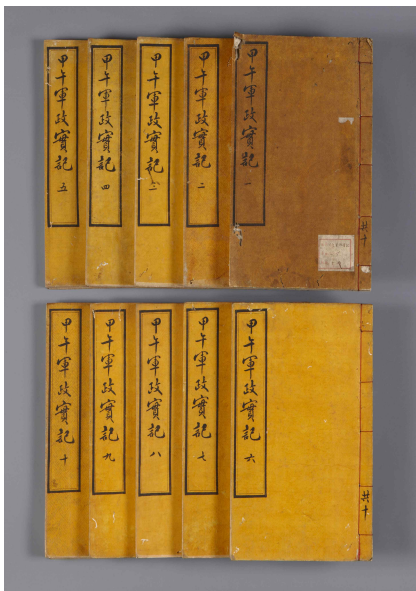 甲午軍政實記 一
共十
甲午軍政實記 二
甲午軍政實記 三
甲午軍政實記 四
甲午軍政實記 五
甲午軍政實記 六
共十
甲午軍政實記 七
甲午軍政實記 八
甲午軍政實記 九
甲午軍政實記 十